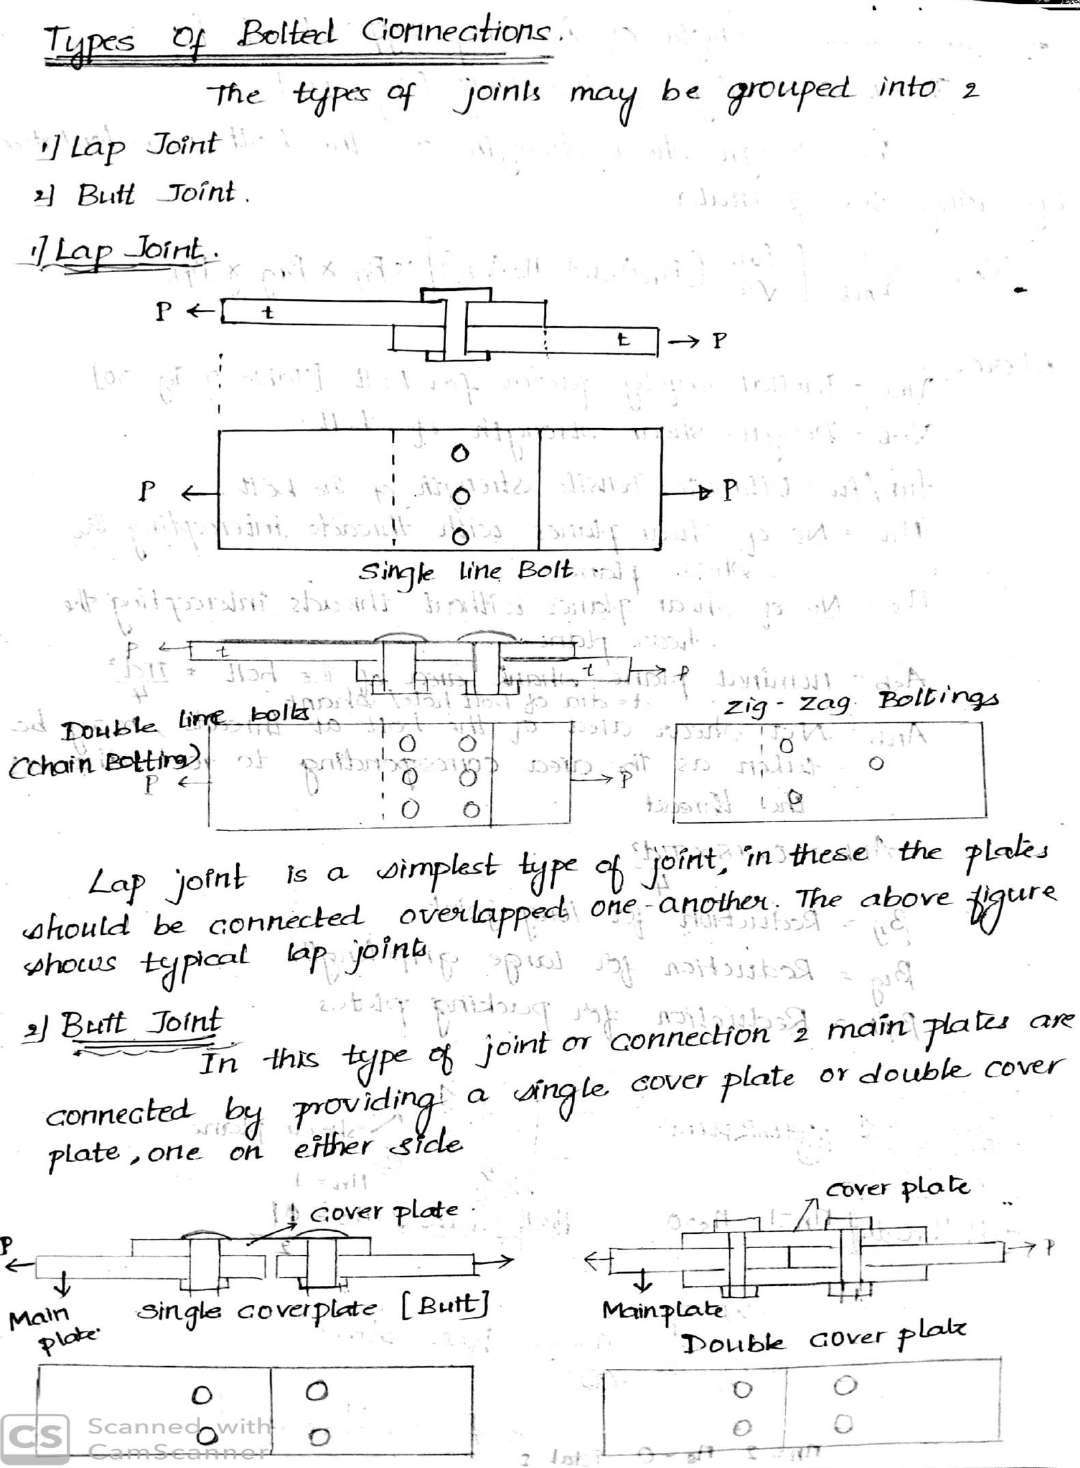 Types Of Bolted Connections.
The types of joints may be grouped into 2
1] Lap Joint
2] Butt Joint.
1] Lap Joint.
P t
t P
P P
Single line Bolt
P t
t P
Double line bolts
(chain Bolting)
zig - zag Boltings
P P
Lap joint is a simplest type of joint, in these the plates
should be connected overlapped one-another. The above figure
shows typical lap joints
2] Butt Joint
In this type of joint or connection 2 main plates are
connected by providing a single cover plate or double cover
plate, one on either side
cover plate
P
Main
plate
Single coverplate [Butt]
cover plate
P
Mainplate
Double cover plate
CS Scanned with
CamScanner